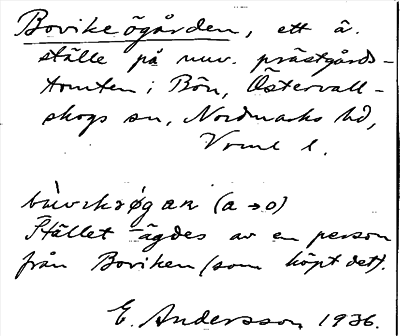 Bovikeögården, ett ä.
ställe på nuv. prästgårds-
tomten i Bön, Östervall-
skogs sn, Nordmarks hd,
Vrml l.
bùvɪkəøgaʀ (a→o)
Stället ägdes av en person
från Boviken (som köpt det).
E. Andersson 1936.